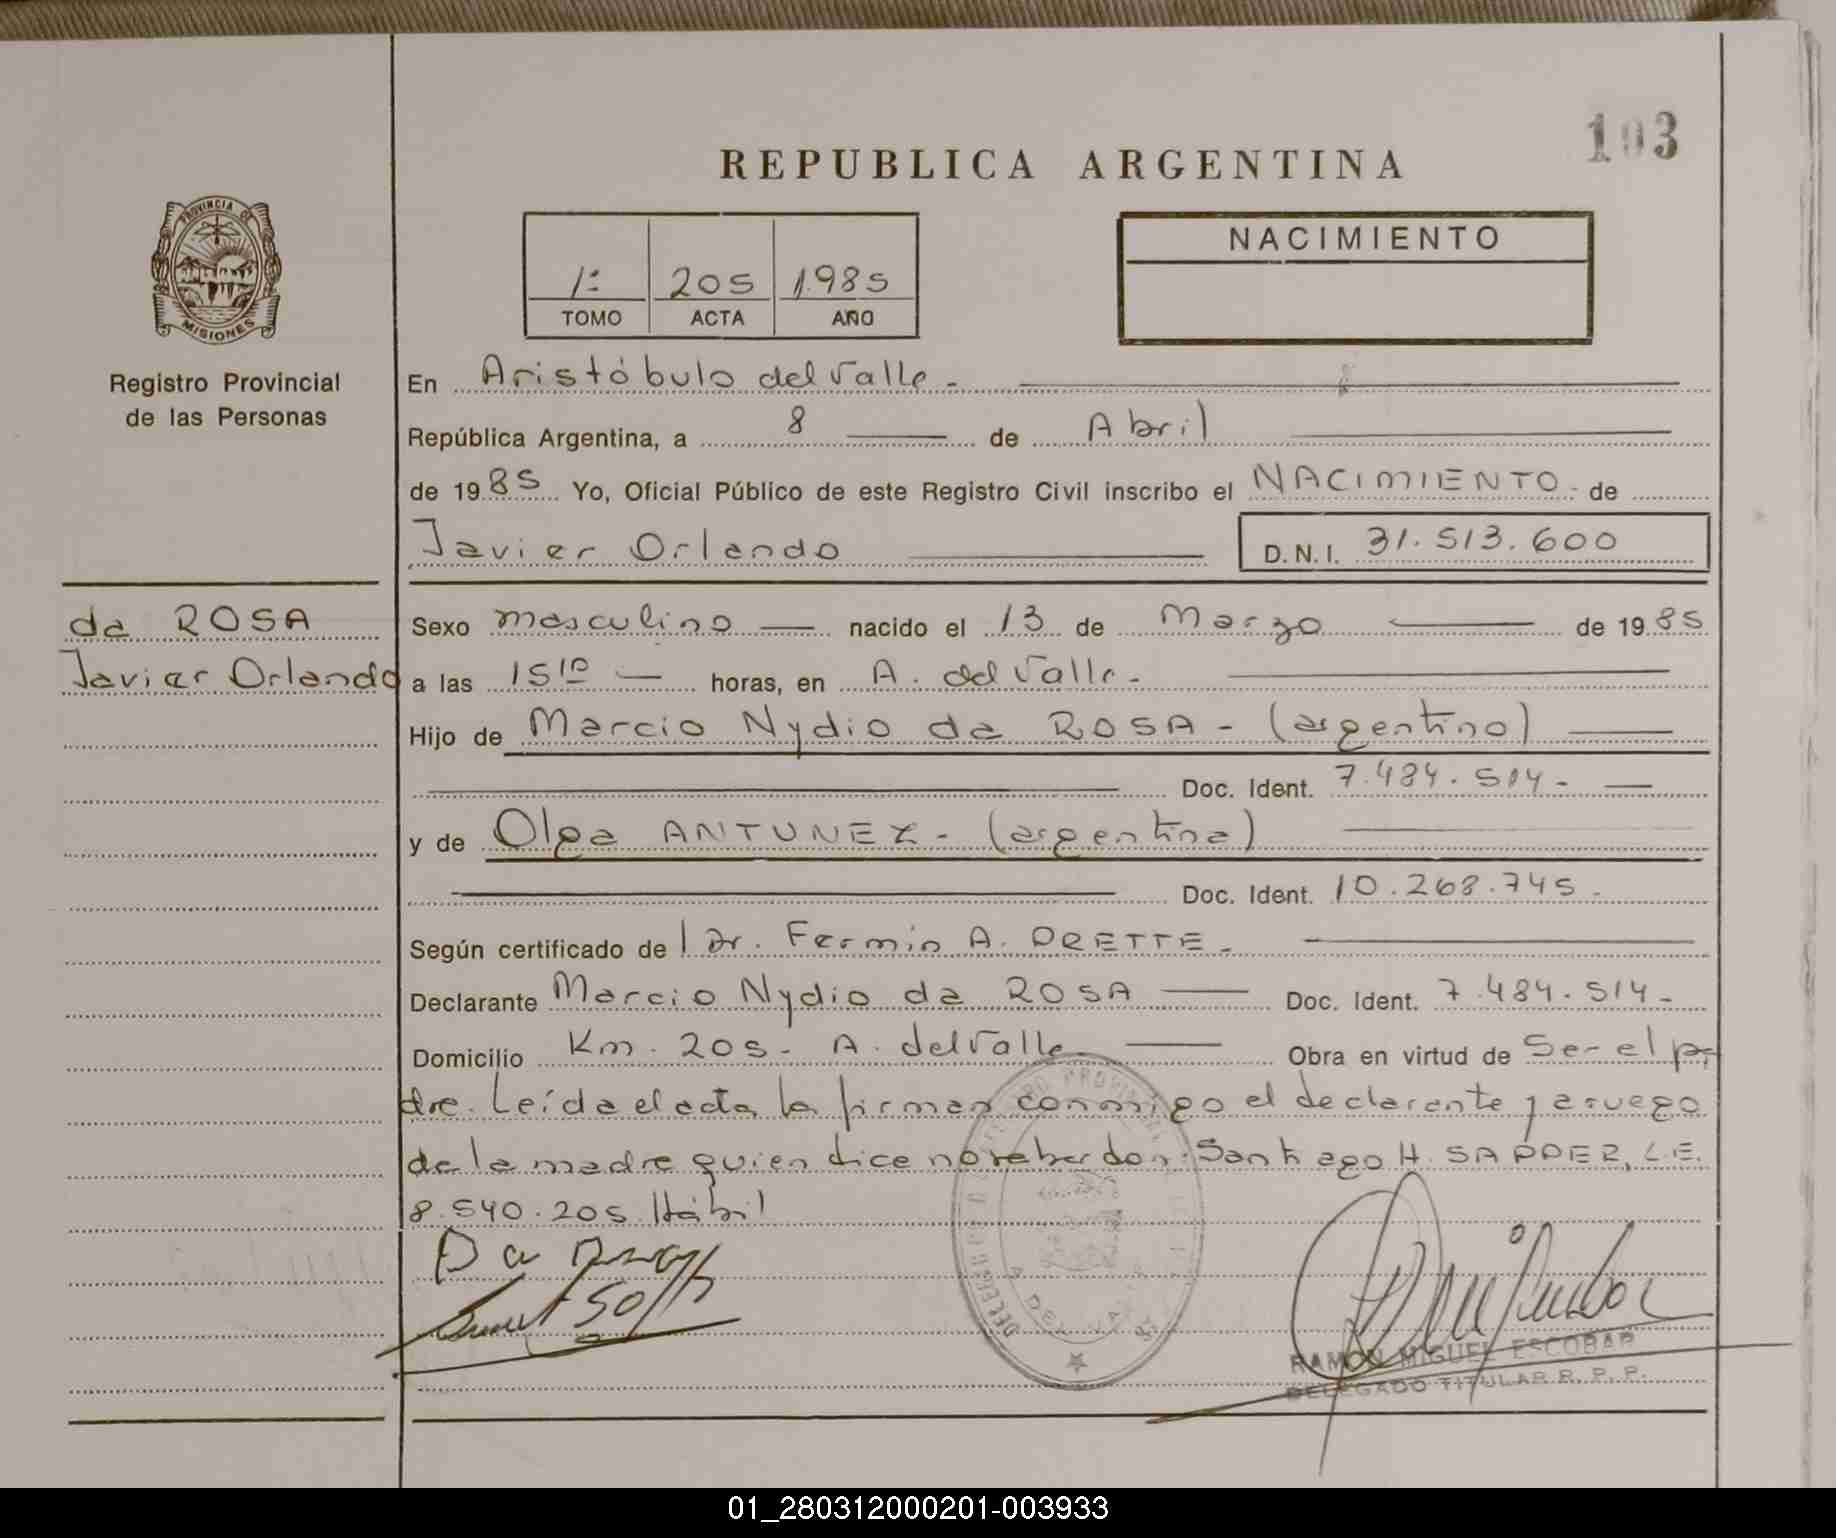 103
REPUBLICA ARGENTINA
PROVINCIA DE
MISIONES
Registro Provincial
de las Personas
1º 205 1.985
TOMO ACTA AÑO
NACIMIENTO
En Aristóbulo del Valle -
República Argentina, a 8 de Abril
de 1985 Yo, Oficial Público de este Registro Civil inscribo el NACIMIENTO - de
Javier Orlando
D.N.I. 31.513.600
da ROSA
Javier Orlando
Sexo masculino nacido el 13 de Marzo de 1985
a las 15 10 horas, en A. del Valle -
Hijo de Marcio Nydio da ROSA - (argentino)
Doc. Ident. 7.484.514 -
y de Olga ANTUNEZ - (argentina)
Doc. Ident. 10.268.745 -
Según certificado de Dr. Fermin A. ORETTE -
Declarante Marcio Nydio da ROSA Doc. Ident. 7.484.514 -
Domicilio Km. 205 - A. del Valle Obra en virtud de Ser el pa-
dre. Leída el acta la firman conmigo el declarante y a ruego
de la madre quien dice no saber Santiago H. SAPPER, L.E.
8.540.205 Hábil
RAMON MIGUEL ESCOBAR
DELEGADO TITULAR R. P. P.
01_280312000201-003933